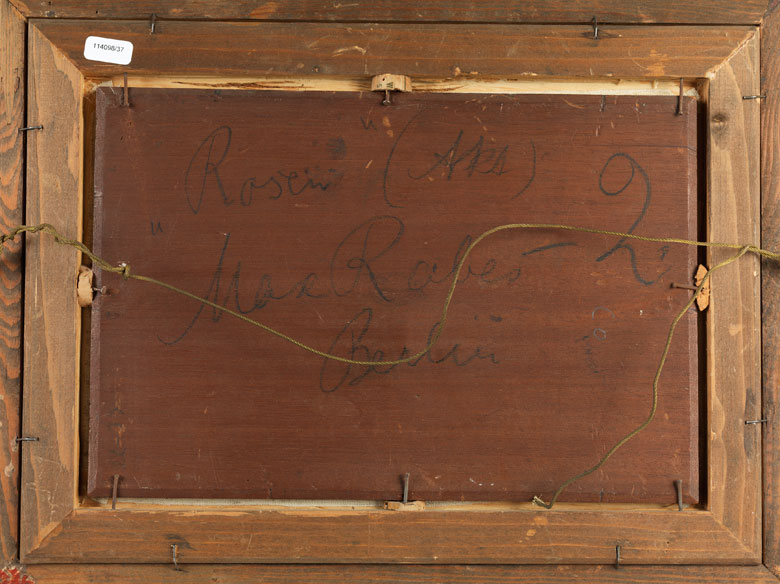 114098/37
"Rosen" (AKA) 2
Max Rabes
Berlin